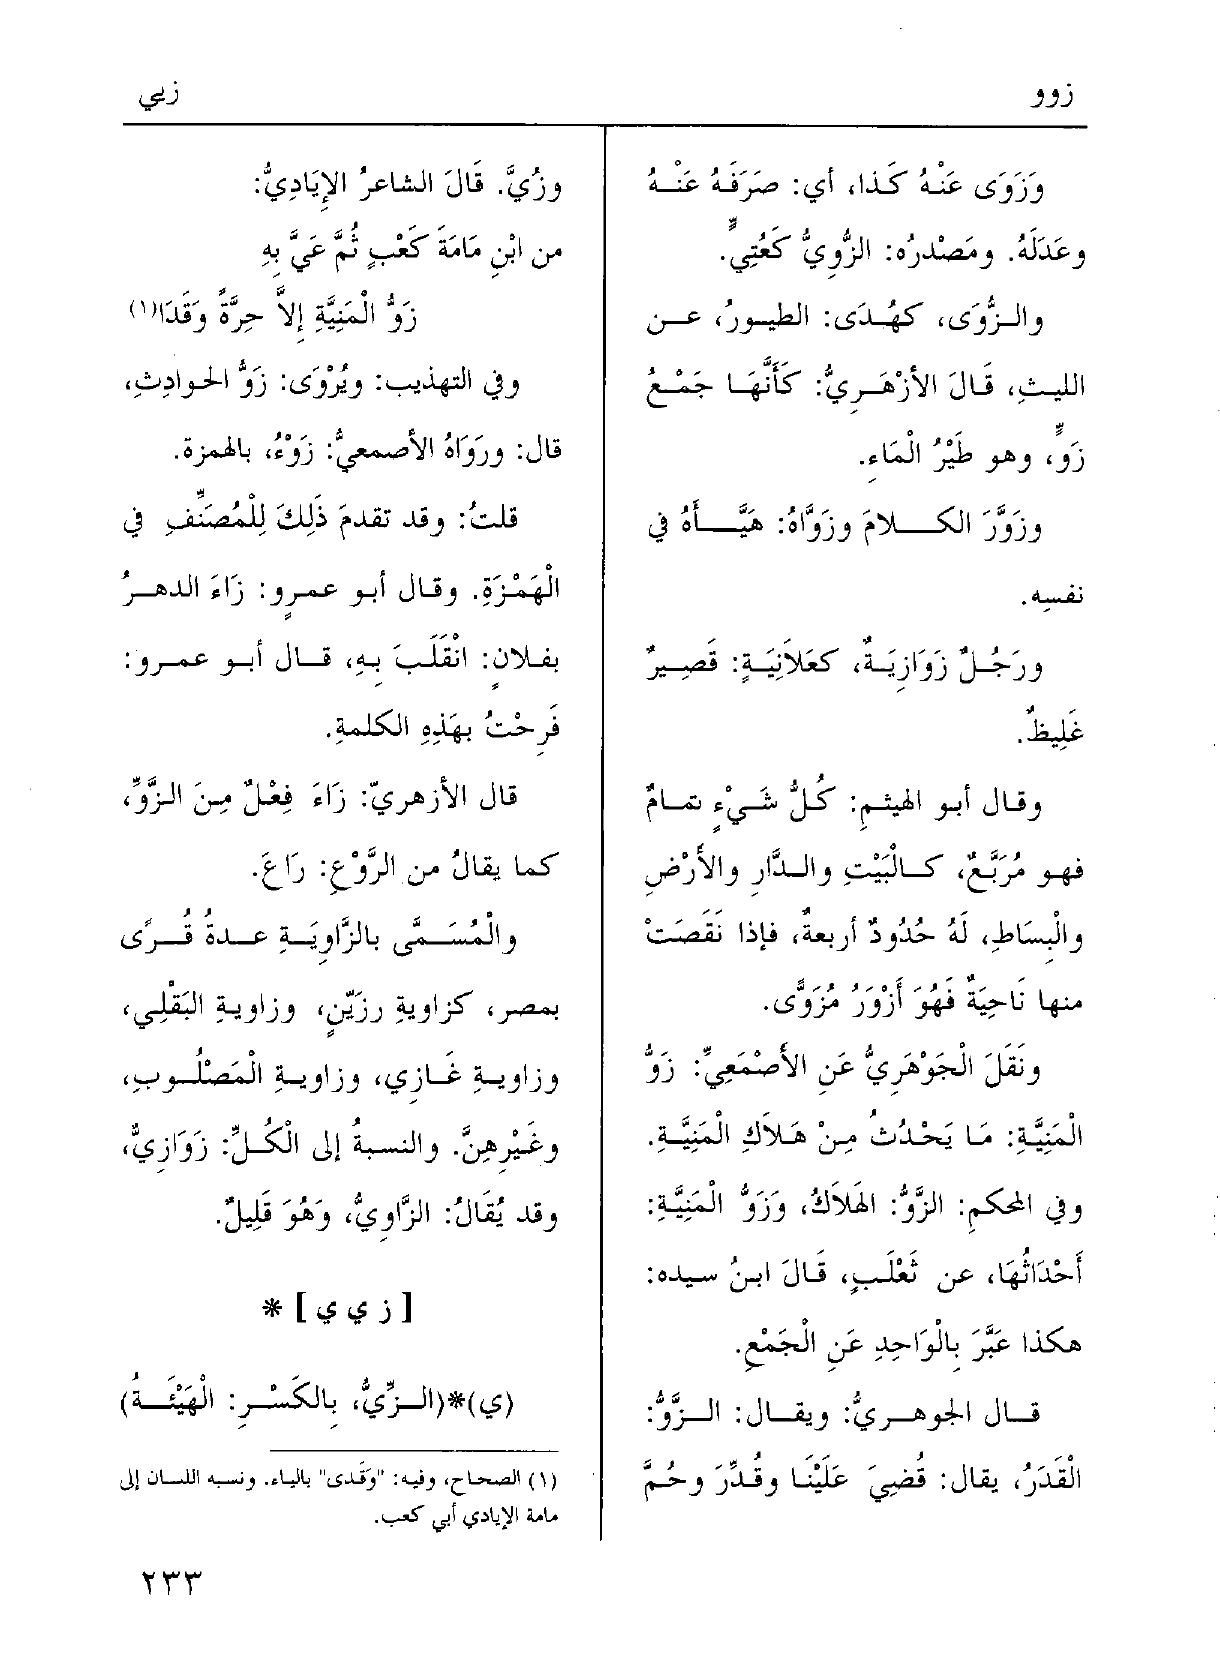 زوو
زيي
وَزَوَى عَنْهُ كَذا، أي: صَرَفَهُ عَنْهُ
وعَدَلَهُ. ومَصْدرُه: الزُّوِيُّ كَعُتِيٍّ.
والزُّوَى، كهُدَى: الطيورُ، عن
الليثِ، قَالَ الأزْهَرِيُّ: كَأَنَّهَا جَمْعُ
زَوٍّ، وهو طَيْرُ الْمَاءِ.
وزَوَّرَ الكلامَ وزَوَّاهُ: هَيَّأهُ في
نفسِه.
ورَجُلٌ زَوَازِيَةٌ، كعَلاَنِيَةٍ: قَصِيرٌ
غَلِيظٌ.
وقال أبو الهيثمِ: كُلُّ شَيْءٍ تمامٌ
فهو مُرَبَّعٌ، كالْبَيْتِ والدَّارِ والأَرْضِ
والْبِسَاطِ، لَهُ حُدُودٌ أربعةٌ، فإذا نَقَصَتْ
منها نَاحِيَةٌ فَهُوَ أَزْوَرُ مُزَوًّى.
ونَقَلَ الْجَوْهَرِيُّ عَنِ الأَصْمَعِيِّ: زَوُّ
الْمَنِيَّةِ: مَا يَحْدُثُ مِنْ هَلاَكِ الْمَنِيَّةِ.
وفي المحكمِ: الزَّوُّ: الهَلاَكُ، وَزَوُّ الْمَنِيَّةِ:
أَحْدَاثُهَا، عن ثَعْلَبٍ، قَالَ ابنُ سيده:
هكذا عَبَّرَ بِالْوَاحِدِ عَنِ الْجَمْعِ.
قال الجوهريُّ: ويقال: الزَّوُّ:
الْقَدَرُ، يقال: قُضِيَ عَلَيْنَا وقُدِّرَ وحُمَّ
وزُيَّ. قَالَ الشاعرُ الإِيَادِيُّ:
من ابْنِ مَامَةَ كَعْبٍ ثُمَّ عَيَّ بِهِ
زَوُّ الْمَنِيَّةِ إلاَّ حِرَّةً وَقَدَا(١)
وفي التهذيبِ: ويُرْوَى: زَوُّ الحوادِثِ،
قال: ورَوَاهُ الأصمعيُّ: زَوْءُ، بالهمزة.
قلتُ: وقد تقدمَ ذَلِكَ لِلْمُصَنِّفِ في
الْهَمْزَةِ. وقال أبو عمرٍو: زَاءَ الدهرُ
بفلانٍ: انْقَلَبَ بِهِ، قال أبو عمرو:
فَرِحْتُ بِهَذِهِ الكلمةِ.
قال الأزهريّ: زَاءَ فِعْلٌ مِنَ الزَّوِّ،
كما يقالُ من الرَّوْعِ: رَاعَ.
والْمُسَمَّى بالزَّاوِيَةِ عدةُ قُرًى
بمصر، كزاويةِ رزِّينٍ، وزاويةِ البَقْلِي،
وزاويةِ غَازِي، وزاويةِ الْمَصْلُوبِ،
وغَيْرِهِنَّ. والنسبةُ إلى الْكُلِّ: زَوَازِيٌّ،
وقد يُقَالُ: الزَّاوِيُّ، وَهُوَ قَلِيلٌ.
[ ز ي ي ] *
(ي)*(الزِّيُّ، بِالكَسْرِ: الْهَيْئَةُ)
(١) الصحاح، وفيه: "وَقَدى" بالياء. ونسبه اللسان إلى
مامة الإيادي أبي كعب.
٢٣٣